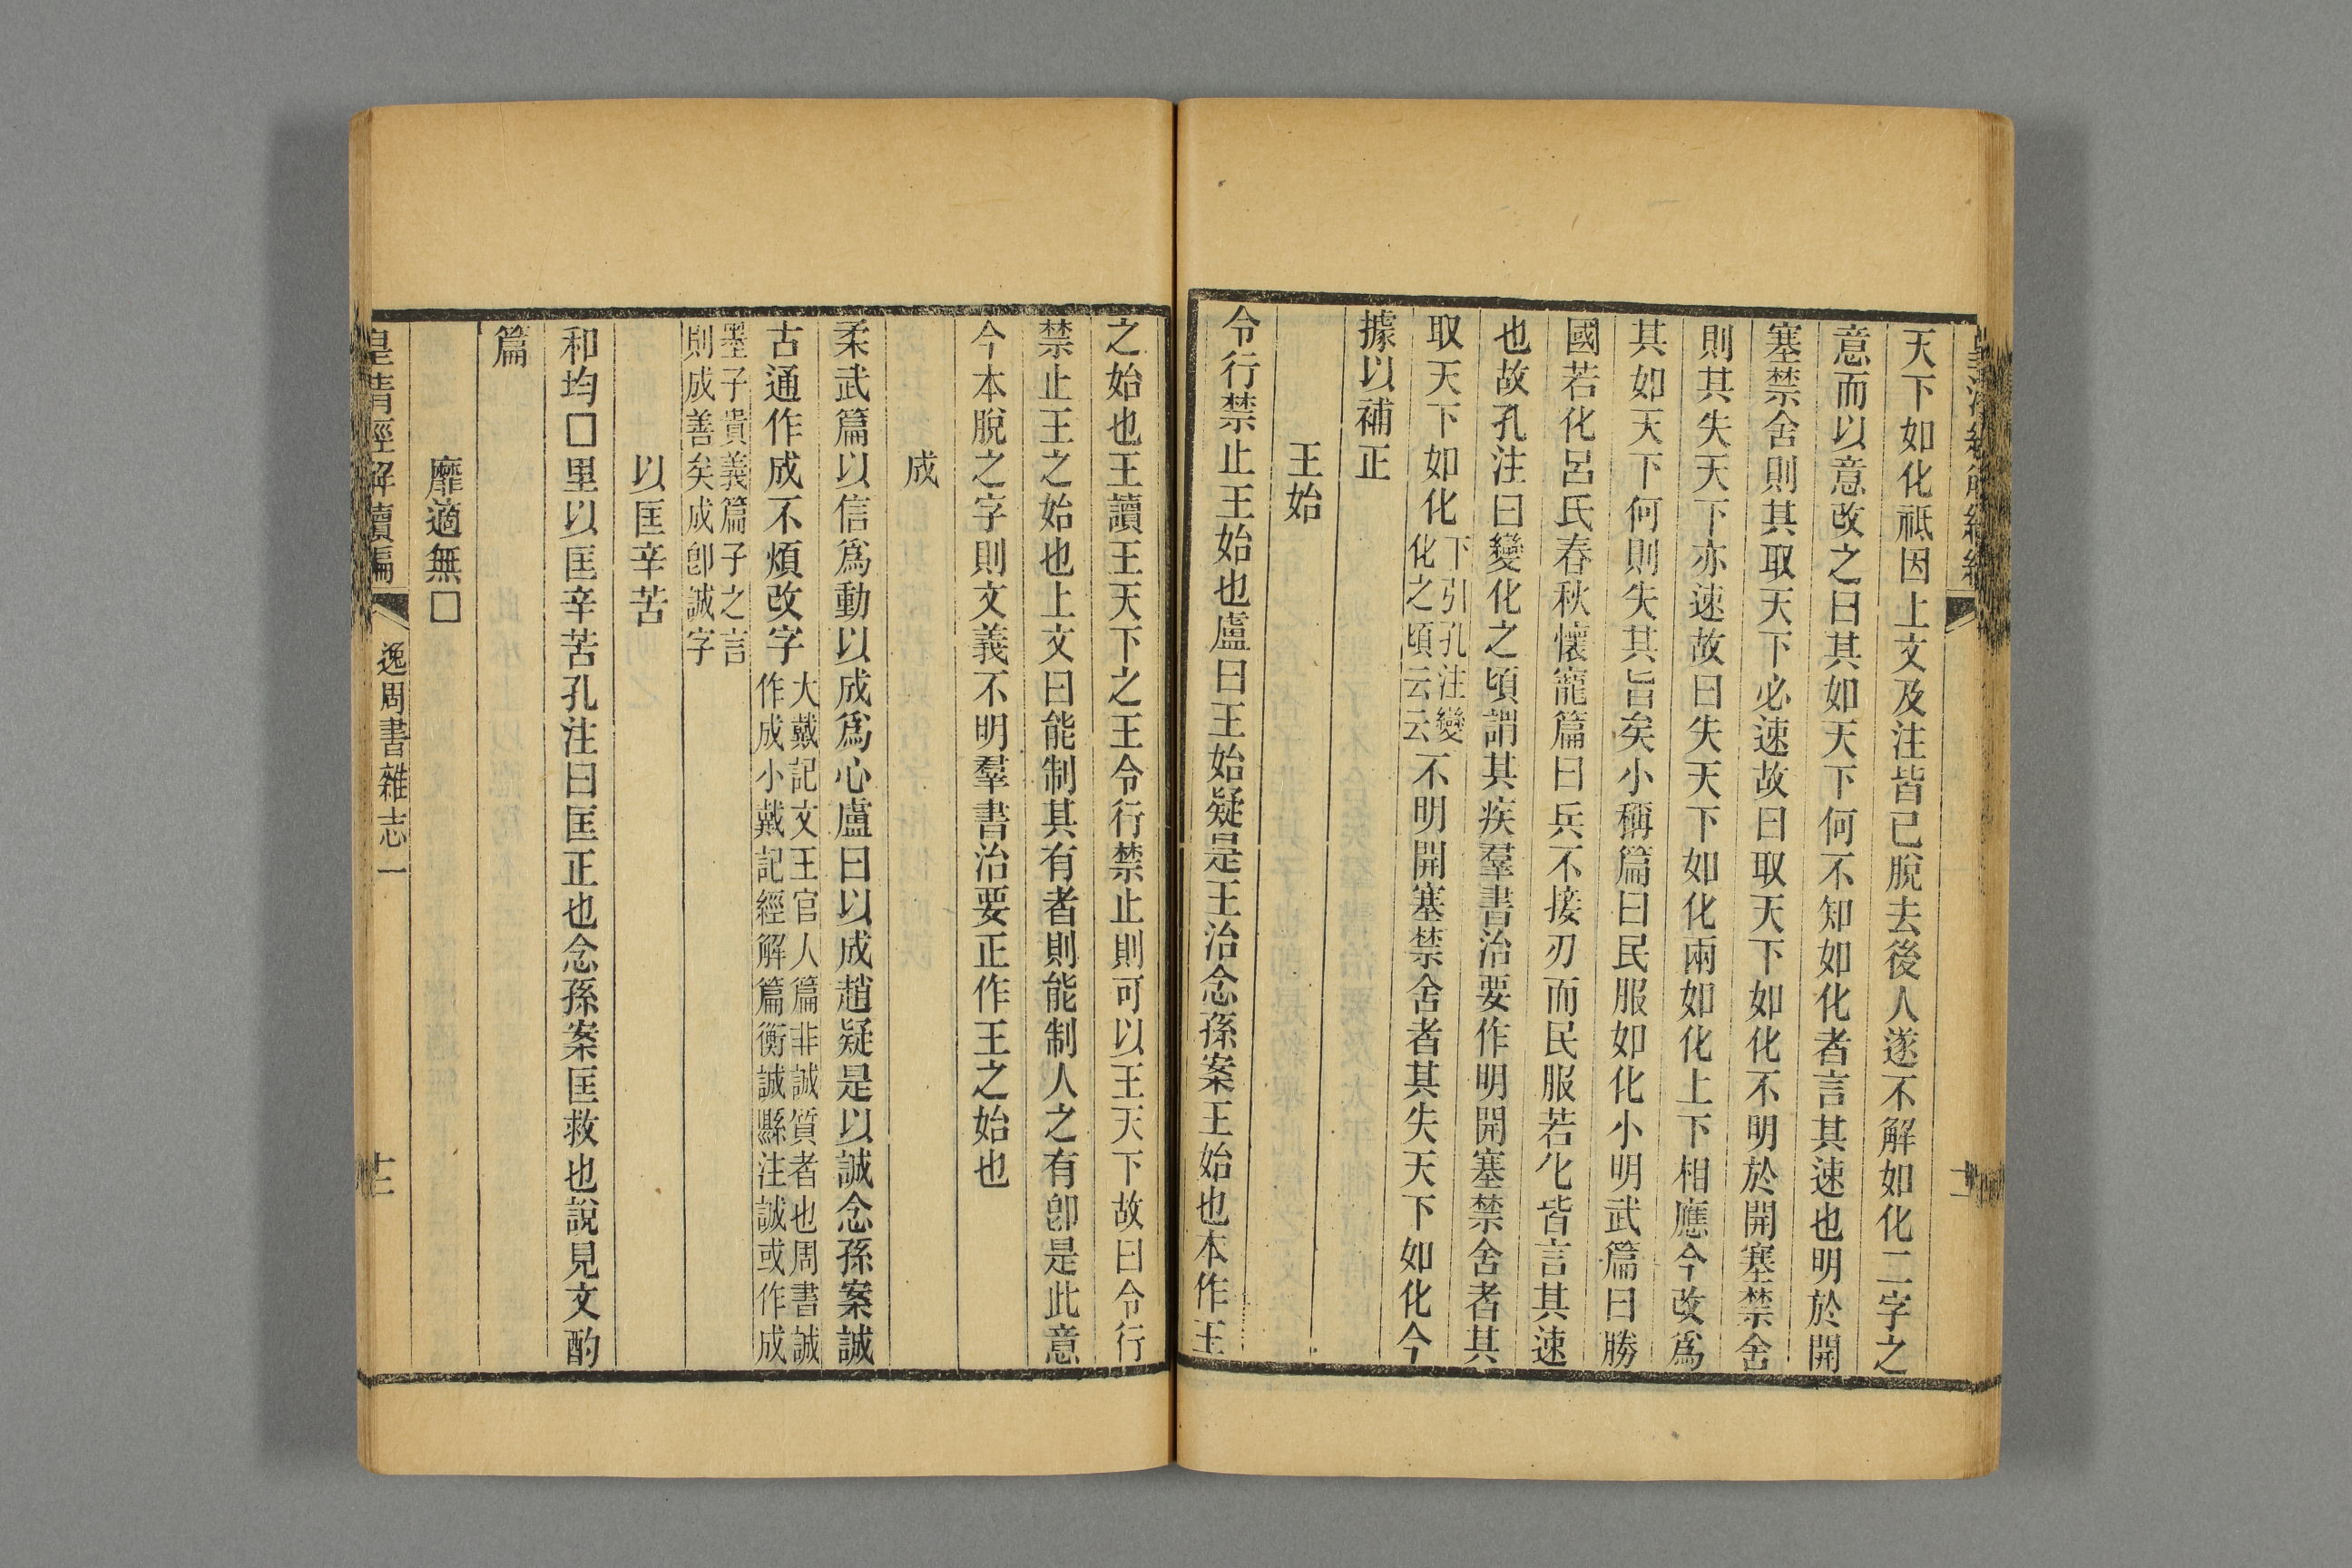 天下如化祗因上文及注皆已脫去後人遂不解如化二字之
意而以意改之曰其如天下何不知如化者言其速也明於開
塞禁舍則其取天下必速故曰取天下如化不明於開塞禁舍
則其失天下亦速故曰失天下如化兩如化上下相應今改爲
其如天下何則失其旨矣小稱篇曰民服如化小明武篇曰勝
國若化呂氏春秋懷寵篇曰兵不接刃而民服若化皆言其速
也故孔注曰變化之頃謂其疾羣書治要作明開塞禁舍者其
取天下如化下引孔注變化之頃云云不明開塞禁舍者其失天下如化今
據以補正
王始
令行禁止王始也盧曰王始疑是王治念孫案王始也本作王
之始也王讀王天下之王令行禁止則可以王天下故曰令行
禁止王之始也上文曰能制其有者則能制人之有卽是此意
今本脫之字則文義不明羣書治要正作王之始也
成
柔武篇以信爲動以成爲心盧曰以成趙疑是以誠念孫案誠
古通作成不煩改字大戴記文王官人篇非誠質者也周書誠
作成小戴記經解篇衡誠縣注誠或作成
墨子貴義篇子之言
則成善矣成卽誠字
以匡辛苦
和均□里以匡辛苦孔注曰匡正也念孫案匡救也說見文酌
篇
靡適無□
皇清經解續編
逸周書雜志一